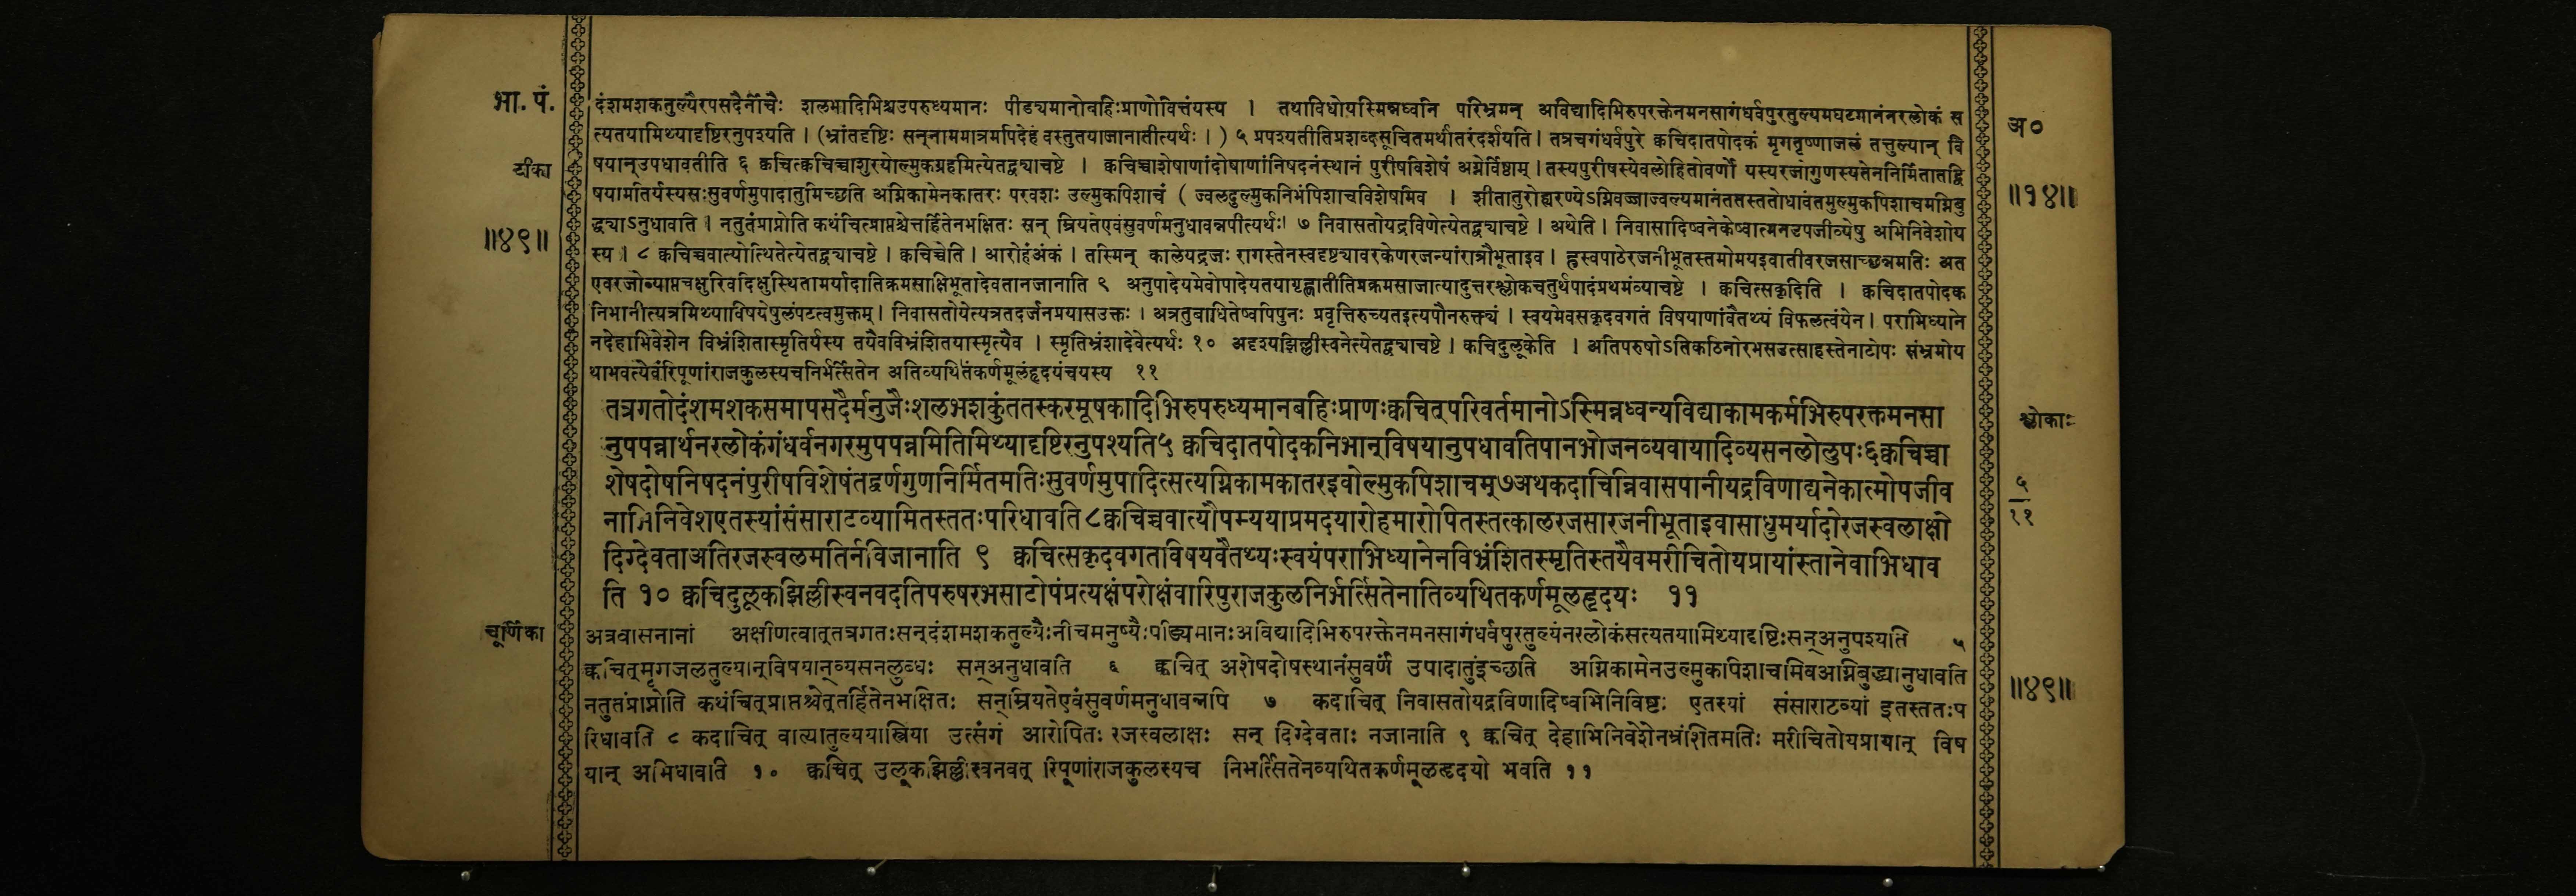 भा. पं.
टीका
॥४९॥
दंशमशकतुल्यैरपसदैर्नीचैः शलभादिभिश्चउपरुध्यमानः पीड्यमानोबहिःप्राणोवित्तंयस्य । तथाविधोयस्मिन्नध्वनि परिभ्रमन् अविद्यादिभिरुपरक्तेनमनसागंधर्वपुरतुल्यमघटमानंनरलोकं स
त्यतयामिथ्यादृष्टिरनुपश्यति । (भ्रांतदृष्टिः सन्नाममात्रमपिदेहं वस्तुतयाजानातीत्यर्थः । ) ५ प्रपश्यतीतिप्रशब्दसूचितमर्थांतरंदर्शयति । तत्रचगंधर्वपुरे क्वचिदातपोदकं मृगतृष्णाजलं तत्तुल्यान् वि
षयान्उपधावतीति ६ क्वचित्क्वचिच्चाशुरयोल्मुकग्रहमित्येतद्व्याचष्टे । क्वचिच्चाशेषाणांदोषाणांनिषदनंस्थानं पुरीषविशेषं अग्नेर्विष्ठाम् । तस्यपुरीषस्येवलोहितोवर्णो यस्यरजोगुणस्यतेननिर्मितातद्वि
षयामतिर्यस्यसःसुवर्णमुपादातुमिच्छति अग्निकामेनकातरः परवशः उल्मुकपिशाचं ( ज्वलदुल्मुकनिभंपिशाचविशेषमिव । शीतातुरोह्यरण्येऽग्निवज्जाज्वल्यमानंततस्ततोधावंतमुल्मुकपिशाचमग्निबु
द्ध्याऽनुधावति । नतुतंप्राप्नोति कथंचित्प्राप्तश्चेत्तर्हितेनभक्षितः सन् म्रियतेएवंसुवर्णमनुधावन्नपीत्यर्थः। ७ निवासतोयद्रविणेत्येतद्व्याचष्टे । अथेति । निवासादिष्वनेकेष्वात्मनउपजीव्येषु अभिनिवेशोय
स्य । ८ क्वचिच्चवात्योत्थितेत्येतद्व्याचष्टे । क्वचिच्चेति । आरोहंअंकं । तस्मिन् कालेयद्रजः रागस्तेनस्वदृष्ट्यावरकेणरजन्यांरात्रौभूताइव । ह्रस्वपाठेरजनीभूतस्तमोमयइवातीवरजसाच्छन्नमतिः अत
एवरजोव्याप्तचक्षुरिवदिक्षुस्थितामर्यादातिक्रमसाक्षिभूतादेवतानजानाति ९ अनुपादेयमेवोपादेयतयागृह्णातीतिप्रक्रमसाजात्यादुत्तरश्लोकचतुर्थपादंप्रथमंव्याचष्टे । क्वचित्सकृदिति । क्वचिदातपोदक
निभानीत्यत्रमिथ्याविषयेषुलंपटत्वमुक्तम्। निवासतोयेत्यत्रतदर्जनप्रयासउक्तः । अत्रतुबाधितेष्वपिपुनः प्रवृत्तिरुच्यतइत्यपौनरुक्त्यं । स्वयमेवसकृदवगतं विषयाणांवैतथ्यं विफलत्वंयेन । पराभिध्याने
नदेहाभिवेशेन विभ्रंशितास्मृतिर्यस्य तयैवविभ्रंशितयास्मृत्यैव । स्मृतिभ्रंशादेवेत्यर्थः १० अदृश्यझिल्लीस्वनेत्येतद्व्याचष्टे । क्वचिदुलूकेति । अतिपरुषोऽतिकठिनोरभसउत्साहस्तेनाटोपः संभ्रमोय
थाभवत्येवंरिपूणांराजकुलस्यचनिर्भर्त्सितेन अतिव्यथितंकर्णमूलंहृदयंचयस्य ११
तत्रगतोदंशमशकसमापसदैर्मनुजैःशलभशकुंततस्करमूषकादिभिरुपरुध्यमानबहिःप्राणःक्वचित्परिवर्तमानोऽस्मिन्नध्वन्यविद्याकामकर्मभिरुपरक्तमनसा
नुपपन्नार्थनरलोकंगंधर्वनगरमुपपन्नमितिमिथ्यादृष्टिरनुपश्यति५ क्वचिदातपोदकनिभान्विषयानुपधावतिपानभोजनव्यवायादिव्यसनलोलुपः६क्वचिच्चा
शेषदोषनिषदनंपुरीषविशेषंतद्वर्णगुणनिर्मितमतिःसुवर्णमुपादित्सत्यग्निकामकातरइवोल्मुकपिशाचम्७अथकदाचिन्निवासपानीयद्रविणाद्यनेकात्मोपजीव
नाभिनिवेशएतस्यांसंसाराटव्यामितस्ततःपरिधावति८क्वचिच्चवात्यौपम्ययाप्रमदयारोहमारोपितस्तत्कालरजसारजनीभूताइवासाधुमर्यादोरजस्वलाक्षो
दिग्देवताअतिरजस्वलमतिर्नविजानाति ९ क्वचित्सकृदवगतविषयवैतथ्यःस्वयंपराभिध्यानेनविभ्रंशितस्मृतिस्तयैवमरीचितोयप्रायांस्तानेवाभिधाव
ति १० क्वचिदुलूकझिल्लीस्वनवदतिपरुषरभसाटोपंप्रत्यक्षंपरोक्षंवारिपुराजकुलनिर्भर्त्सितेनातिव्यथितकर्णमूलहृदयः ११
चूर्णिका
अत्रवासनानां अक्षीणत्वात्तत्रगतःसन्दंशमशकतुल्यैःनीचमनुष्यैःपीड्यमानःअविद्यादिभिरुपरक्तेनमनसागंधर्वपुरतुल्यंनरलोकंसत्यतयामिथ्यादृष्टिःसन्अनुपश्यति ५
क्वचित्मृगजलतुल्यान्विषयान्व्यसनलुब्धः सन्अनुधावति ६ क्वचित् अशेषदोषस्थानंसुवर्णं उपादातुंइच्छति अग्निकामेनउल्मुकपिशाचमिवअग्निबुद्ध्यानुधावति
नतुतंप्राप्नोति कथंचित्प्राप्तश्चेत्तर्हितेनभक्षितः सन्म्रियतेएवंसुवर्णमनुधावन्नपि ७ कदाचित् निवासतोयद्रविणादिष्वभिनिविष्टः एतस्यां संसाराटव्यां इतस्ततःप
रिधावति ८ कदाचित् वात्यातुल्ययास्त्रिया उत्संगं आरोपितः रजस्वलाक्षः सन् दिग्देवताः नजानाति ९ क्वचित् देहाभिनिवेशेनभ्रंशितमतिः मरीचितोयप्रायान् विष
यान् अभिधावति १० क्वचित् उलूकझिल्लीस्वनवत् रिपूणांराजकुलस्यच निर्भर्त्सितेनव्यथितकर्णमूलहृदयो भवति ११
अ०
॥१४॥
श्लोकाः
५
११
॥४९॥